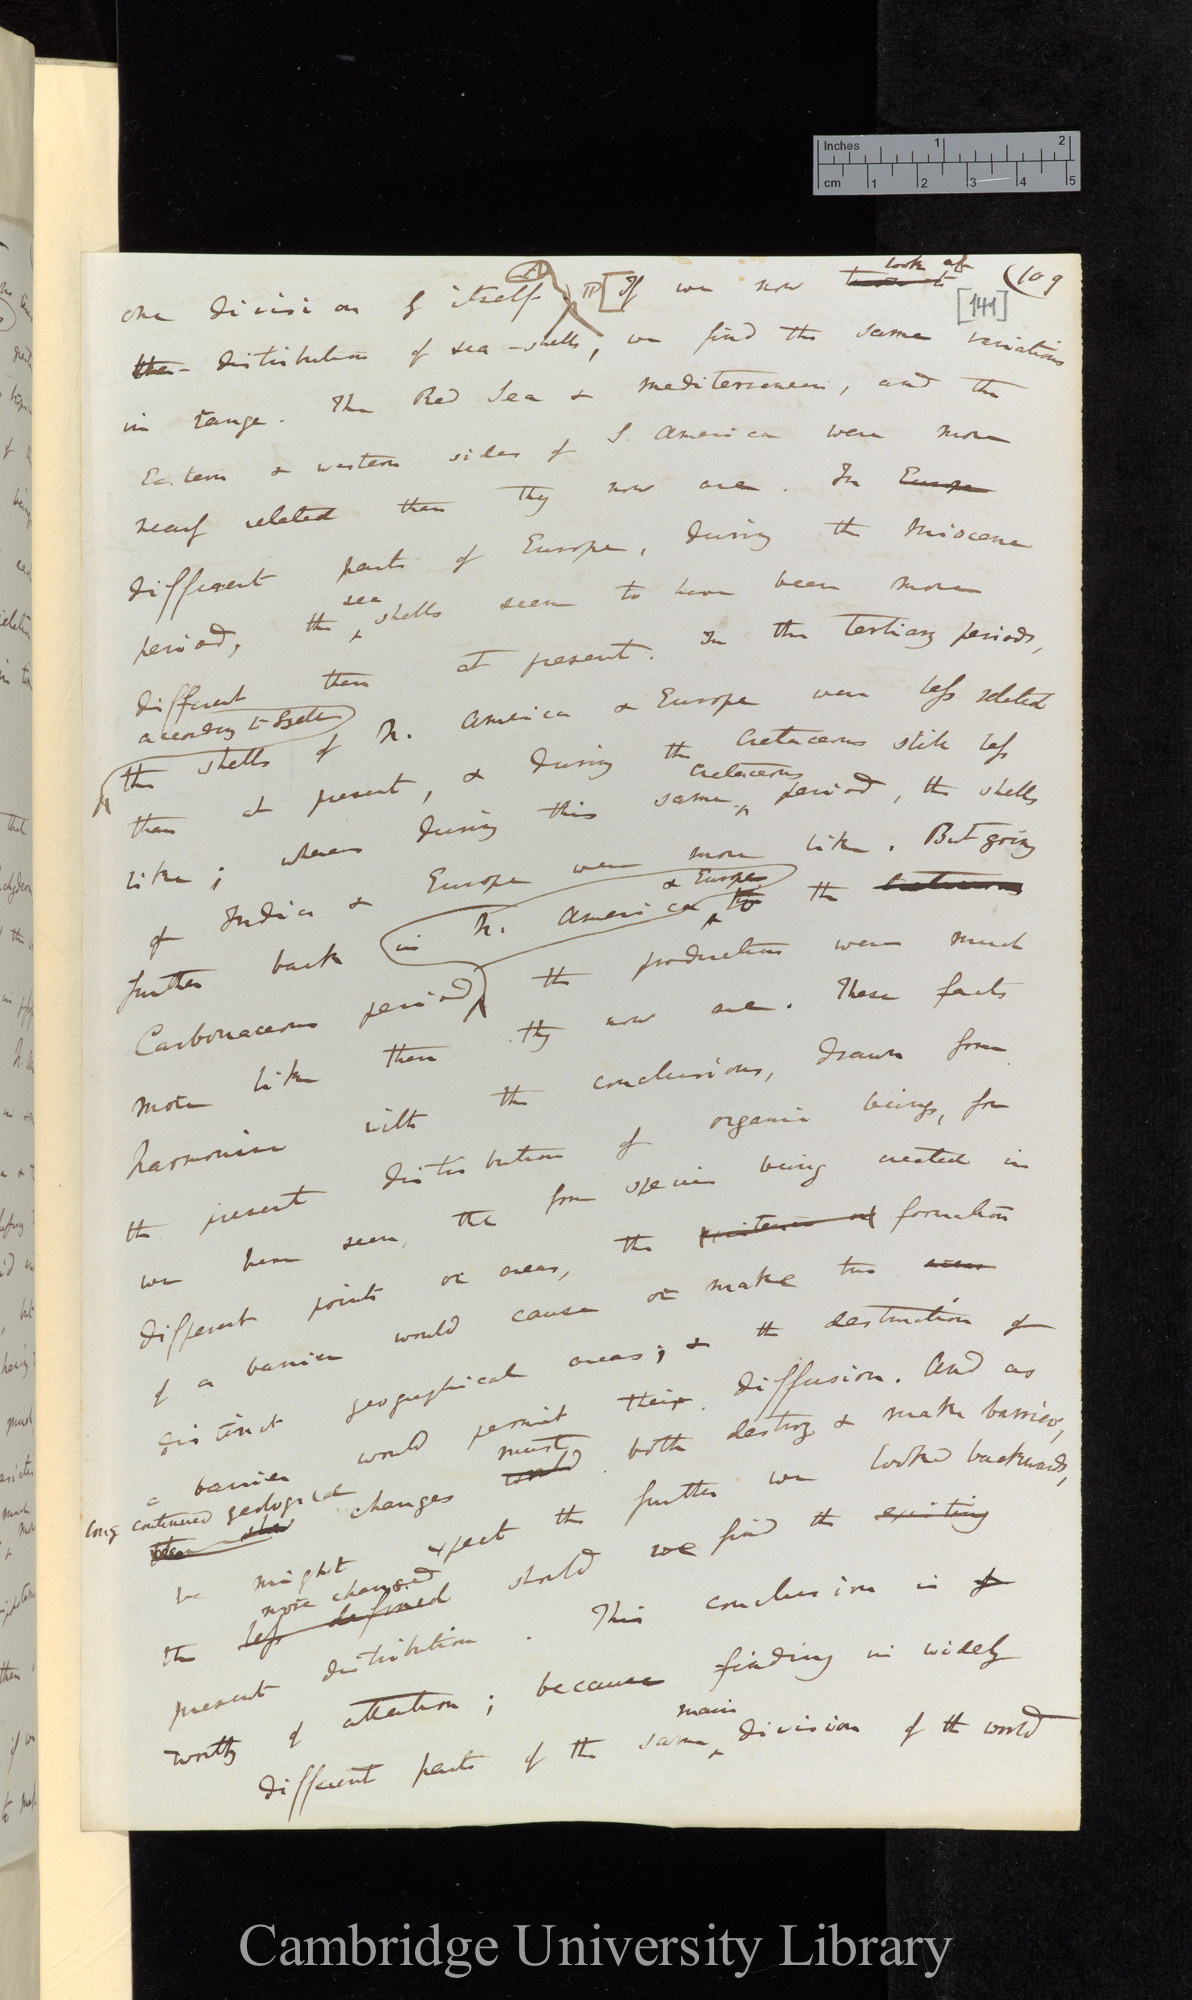 Inches 1 2
cm 1 2 3 4 5
(109
[141]
(A)
look at
one division by itself. ¶ [If we now turn to
the distribution of sea-shells, we find the same variations
in range. The Red Sea & Mediterranean, and the
Eastern & western sides of S. America were more
nearly related than they now are. In Europe
different parts of Europe, during the Miocene
sea
period, the shells seem to have been more
different than at present. In the tertiary periods,
according to Lyell
the shells of N. America & Europe were less related
than at present, & during the Cretaceous still less
cretaceous
like; whereas during this same period, the shells
of India & Europe were more like. But going
& Europe
further back in N. America to the
Carbonaceous period, the productions were much
more like than they now are. These facts
harmonise with the conclusions, drawn from
the present distribution of organic beings, for
we have seen, that from species being created in
different points or areas, the existence of formation
of a barrier would cause or make two areas
distinct geographical areas; & the destruction of
a barrier would permit their diffusion. And as
long continued geological changes must would both destroy & make barriers,
slow
we might expect the further we looked backwards,
more changed
the less defined should we find the existing
present distribution. This conclusion is of
worthy of attention; because finding in widely
main
different parts of the same division of the world
Cambridge University Library